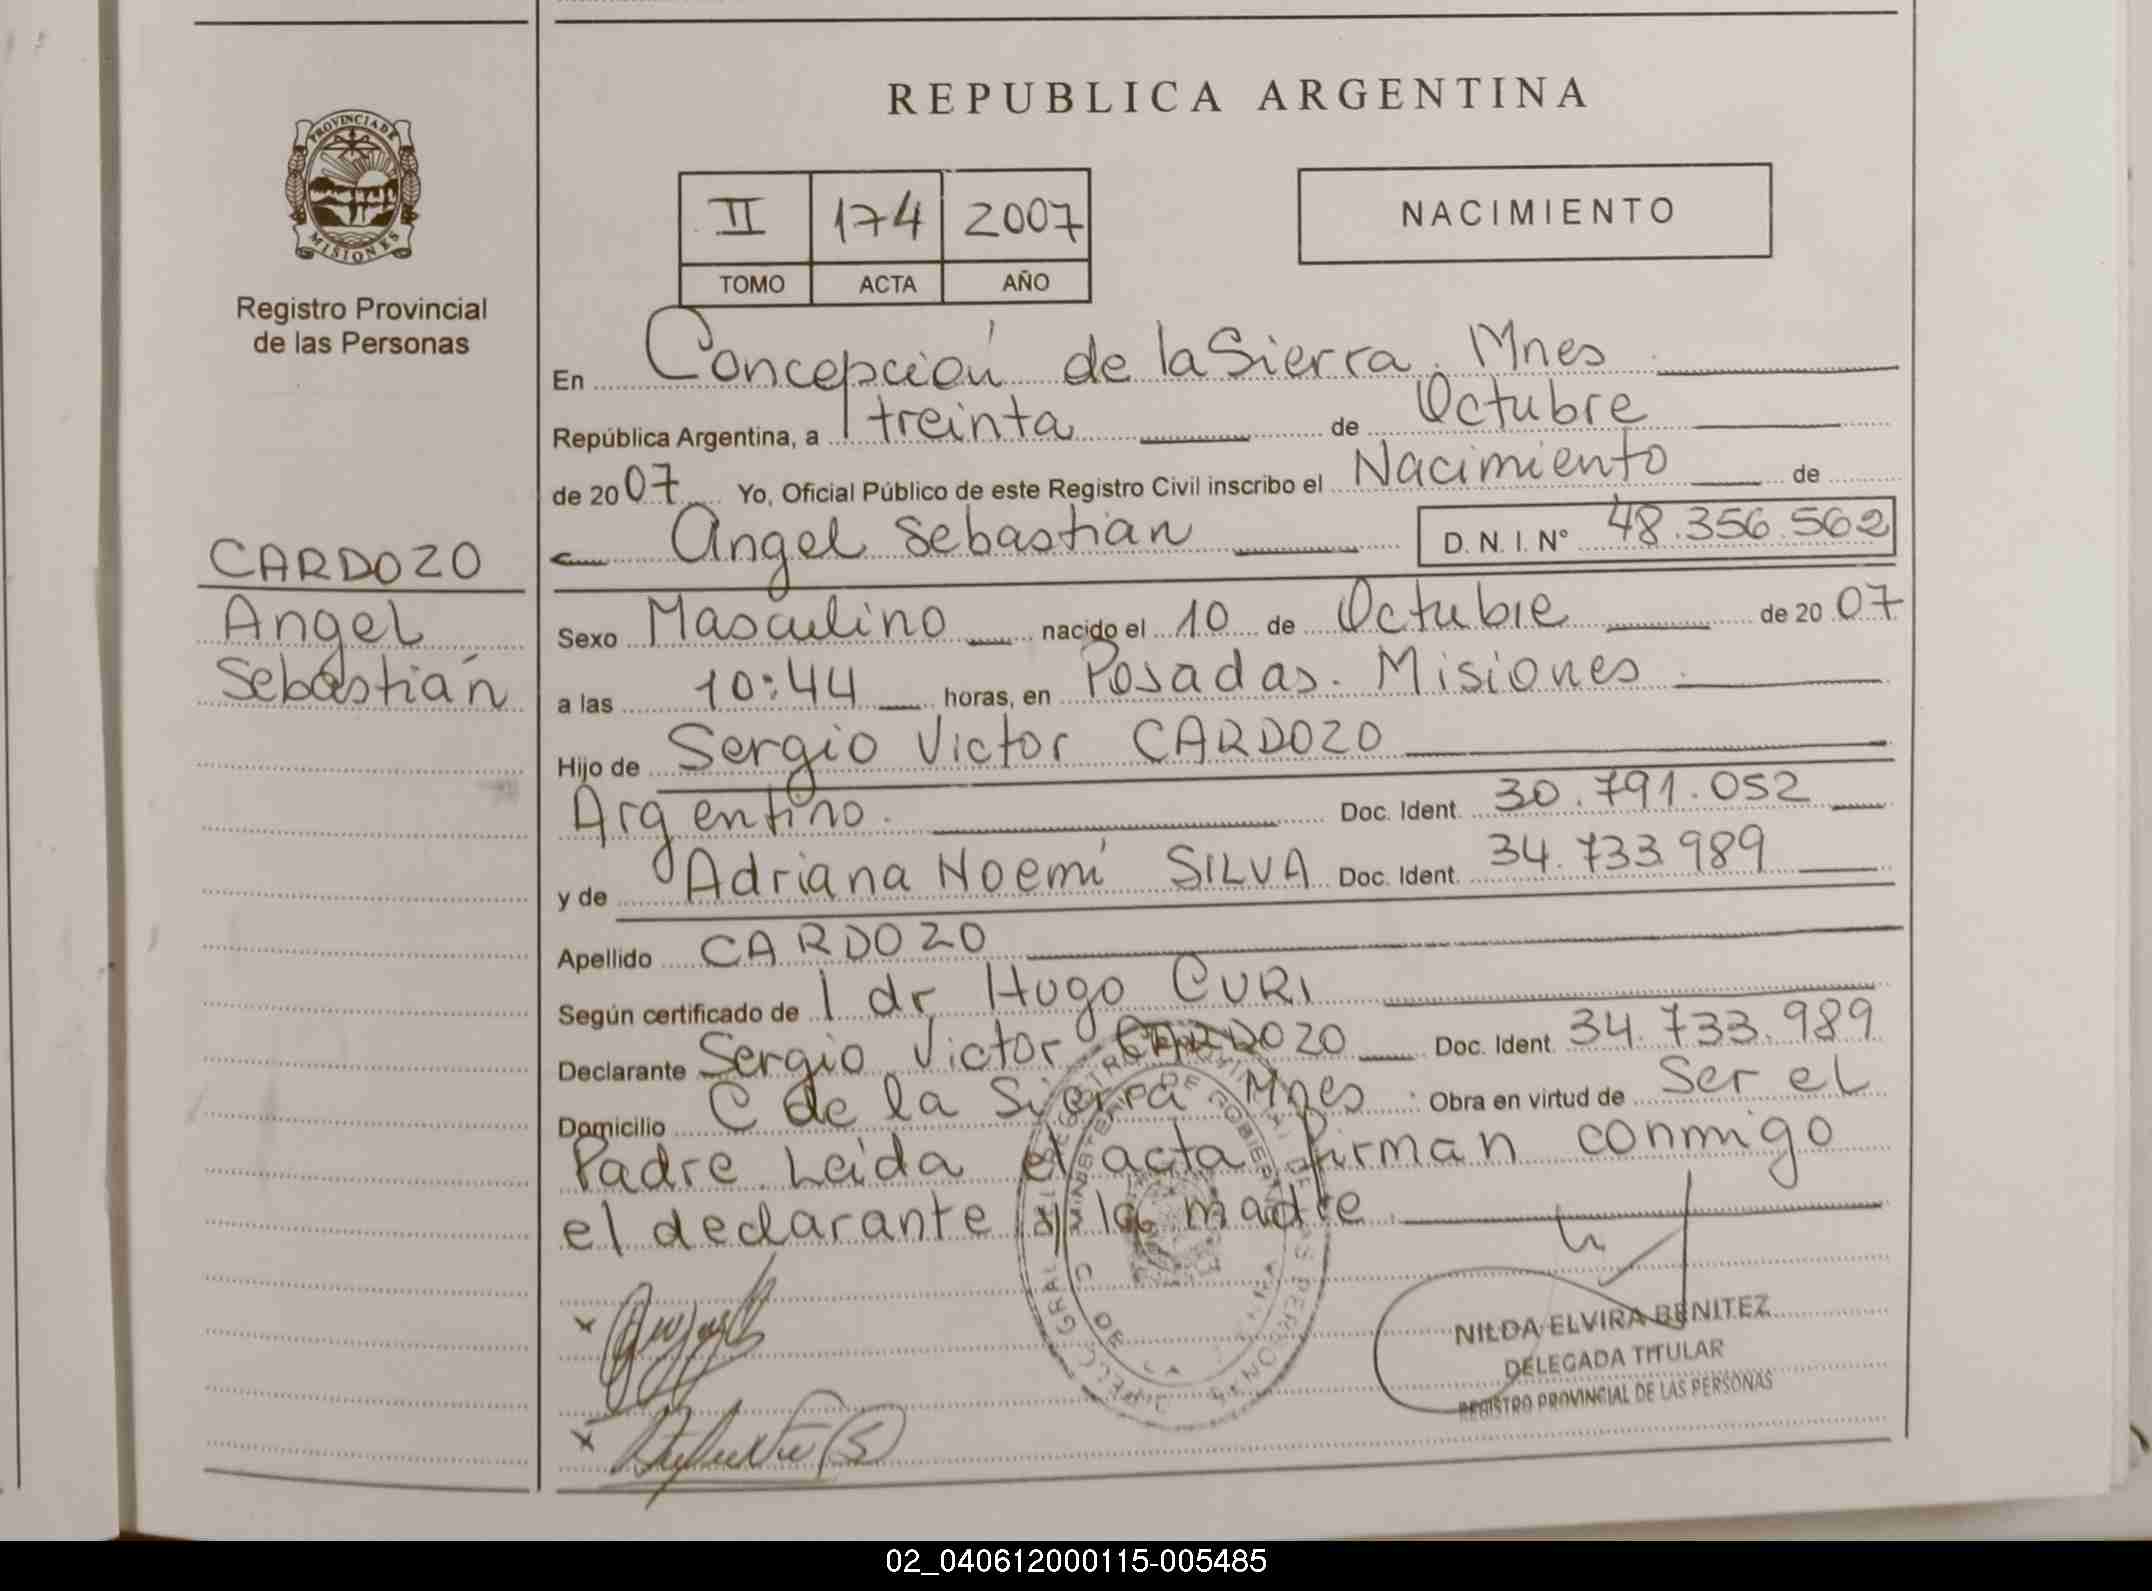 REPUBLICA ARGENTINA
PROVINCIA DE
MISIONES
Registro Provincial
de las Personas
II 174 2007
TOMO ACTA AÑO
NACIMIENTO
En Concepción de la Sierra. Mnes
República Argentina, a treinta de Octubre
de 2007 Yo, Oficial Público de este Registro Civil inscribo el Nacimiento de
Angel Sebastian D. N. I. Nº 48.356.562
CARDOZO
Angel
Sebastián
Sexo Masculino nacido el 10 de Octubre de 2007
a las 10:44 horas, en Posadas. Misiones.
Hijo de Sergio Victor CARDOZO
Argentino. Doc. Ident. 30.791.052
y de Adriana Noemí SILVA Doc. Ident. 34.733.989
Apellido CARDOZO
Según certificado de l dr Hugo CURI
Declarante Sergio Victor CARDOZO Doc. Ident. 34.733.989
Domicilio C de la Sierra Mnes Obra en virtud de Ser el
Padre. Leida el acta firman conmigo
el declarante y la madre.
NILDA ELVIRA BENITEZ
DELEGADA TITULAR
REGISTRO PROVINCIAL DE LAS PERSONAS
02_040612000115-005485